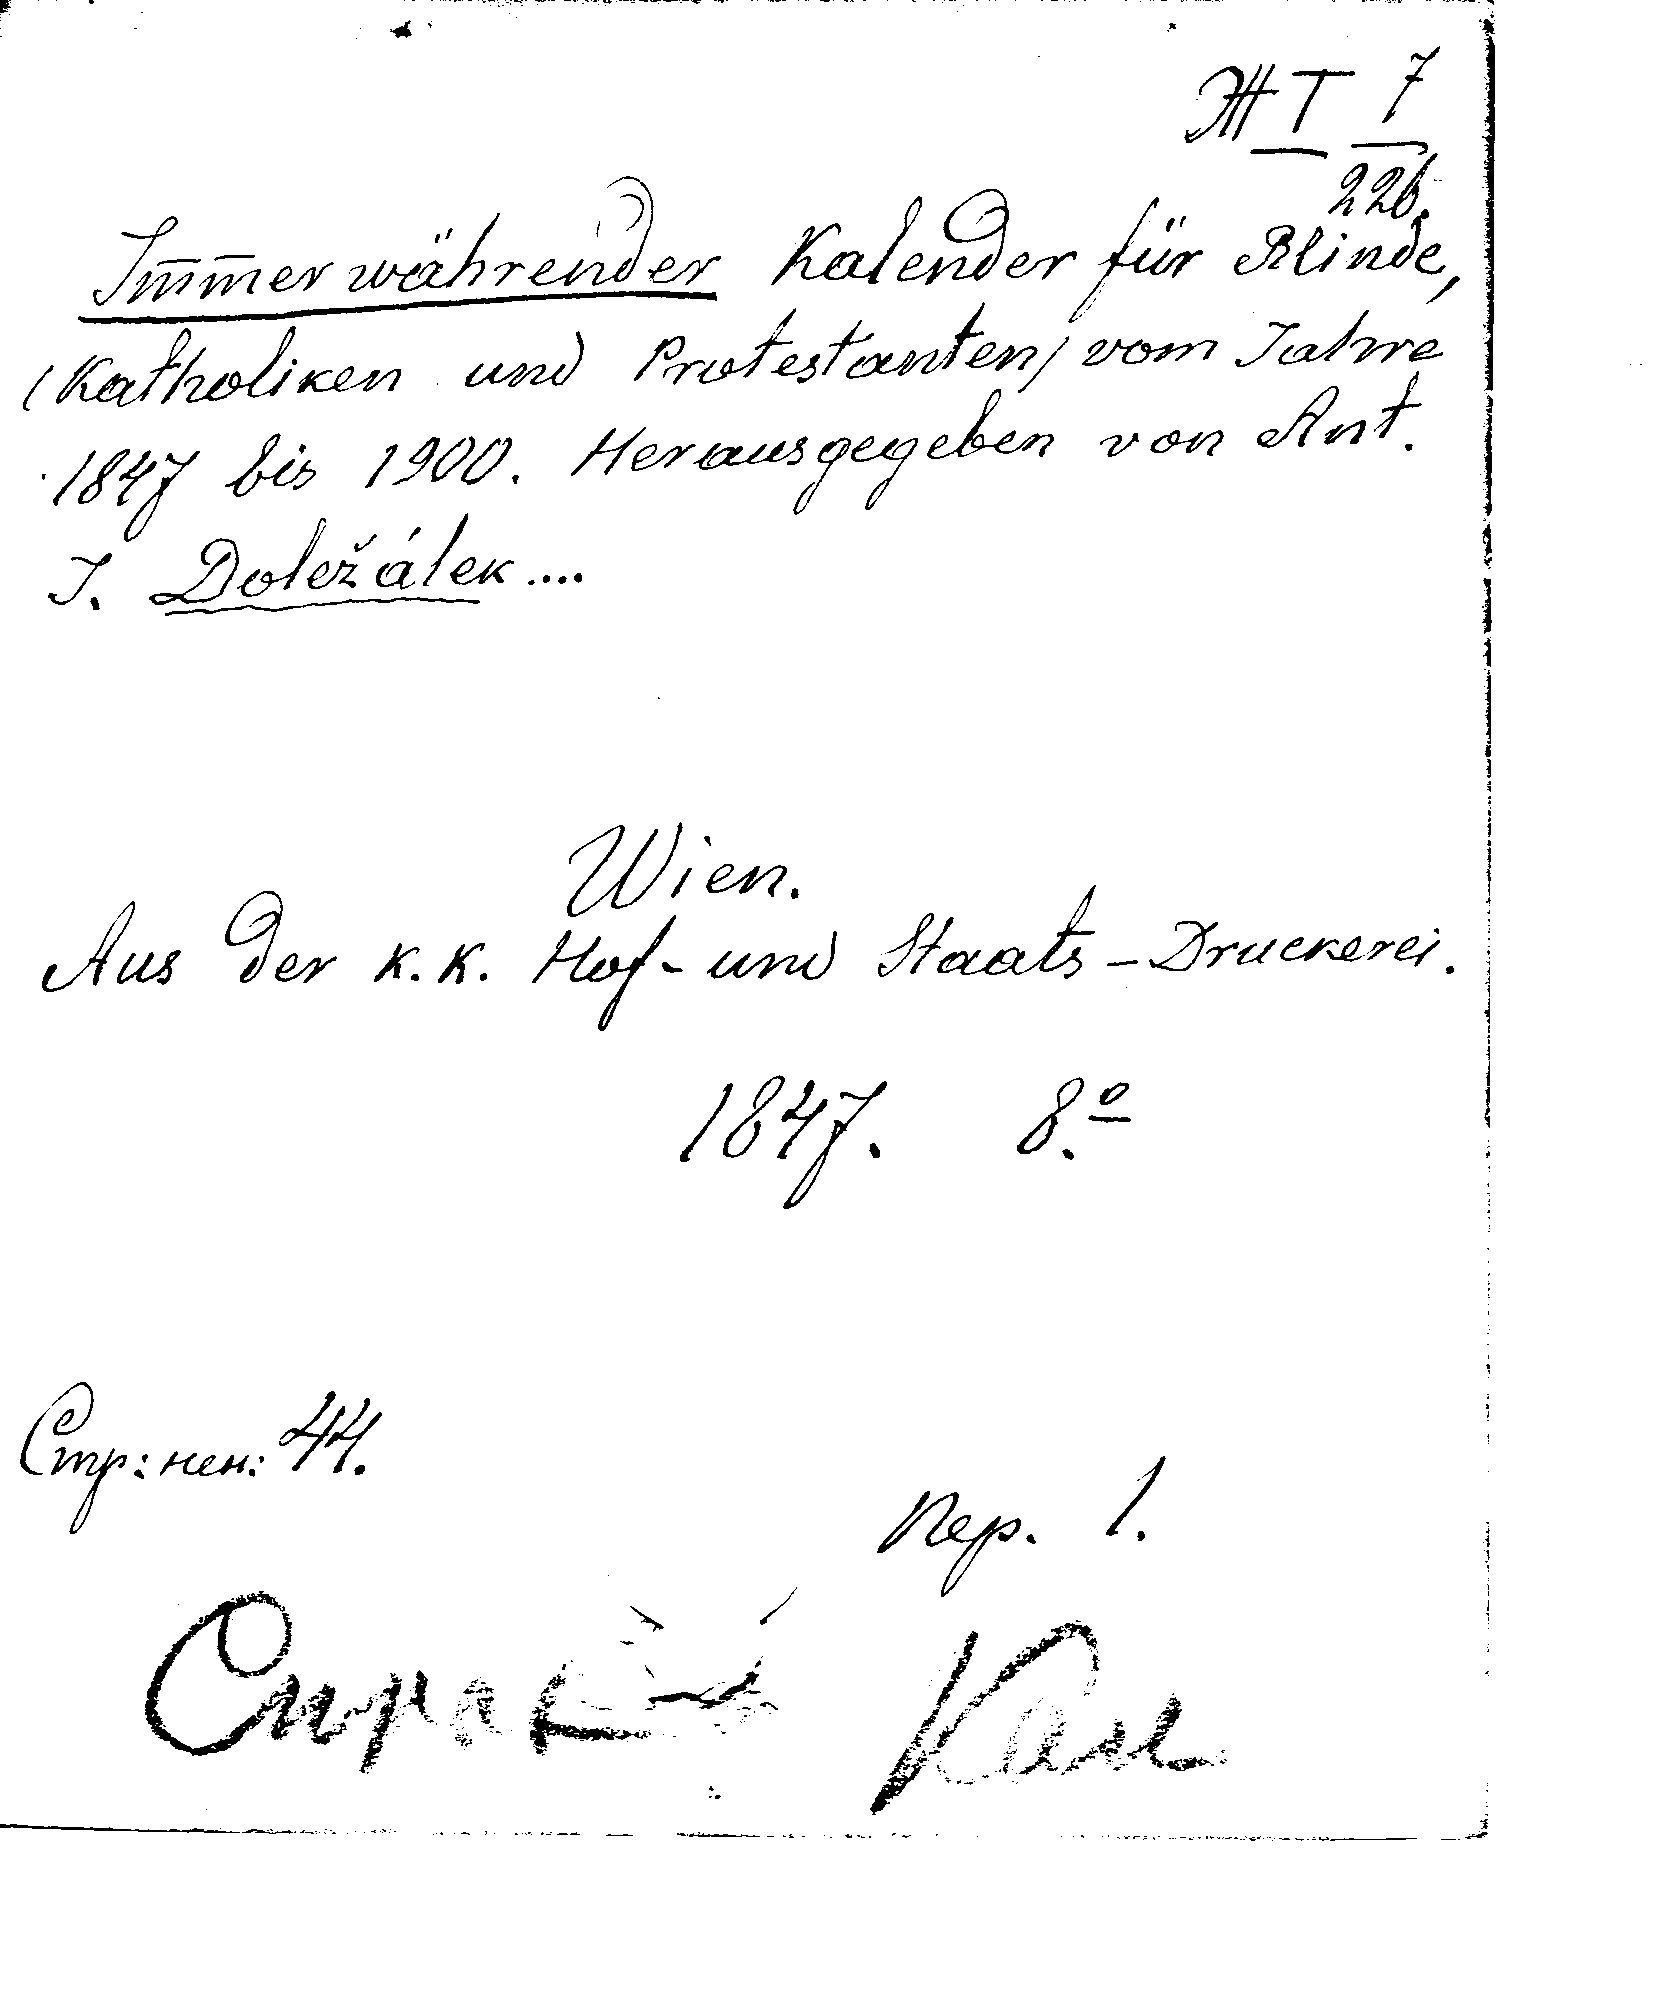 Ж I 7
22б.
Immerwährender Kalender für Blinde,
(Katholiken und Protestanten) vom Jahre
1847 bis 1900. Herausgegeben von Ant.
J. Doležálek....
Wien.
Aus der k.k. Hof- und Staats-Druckerei.
1847. 8.º
Стр: нен: 44.
Пер. 1.